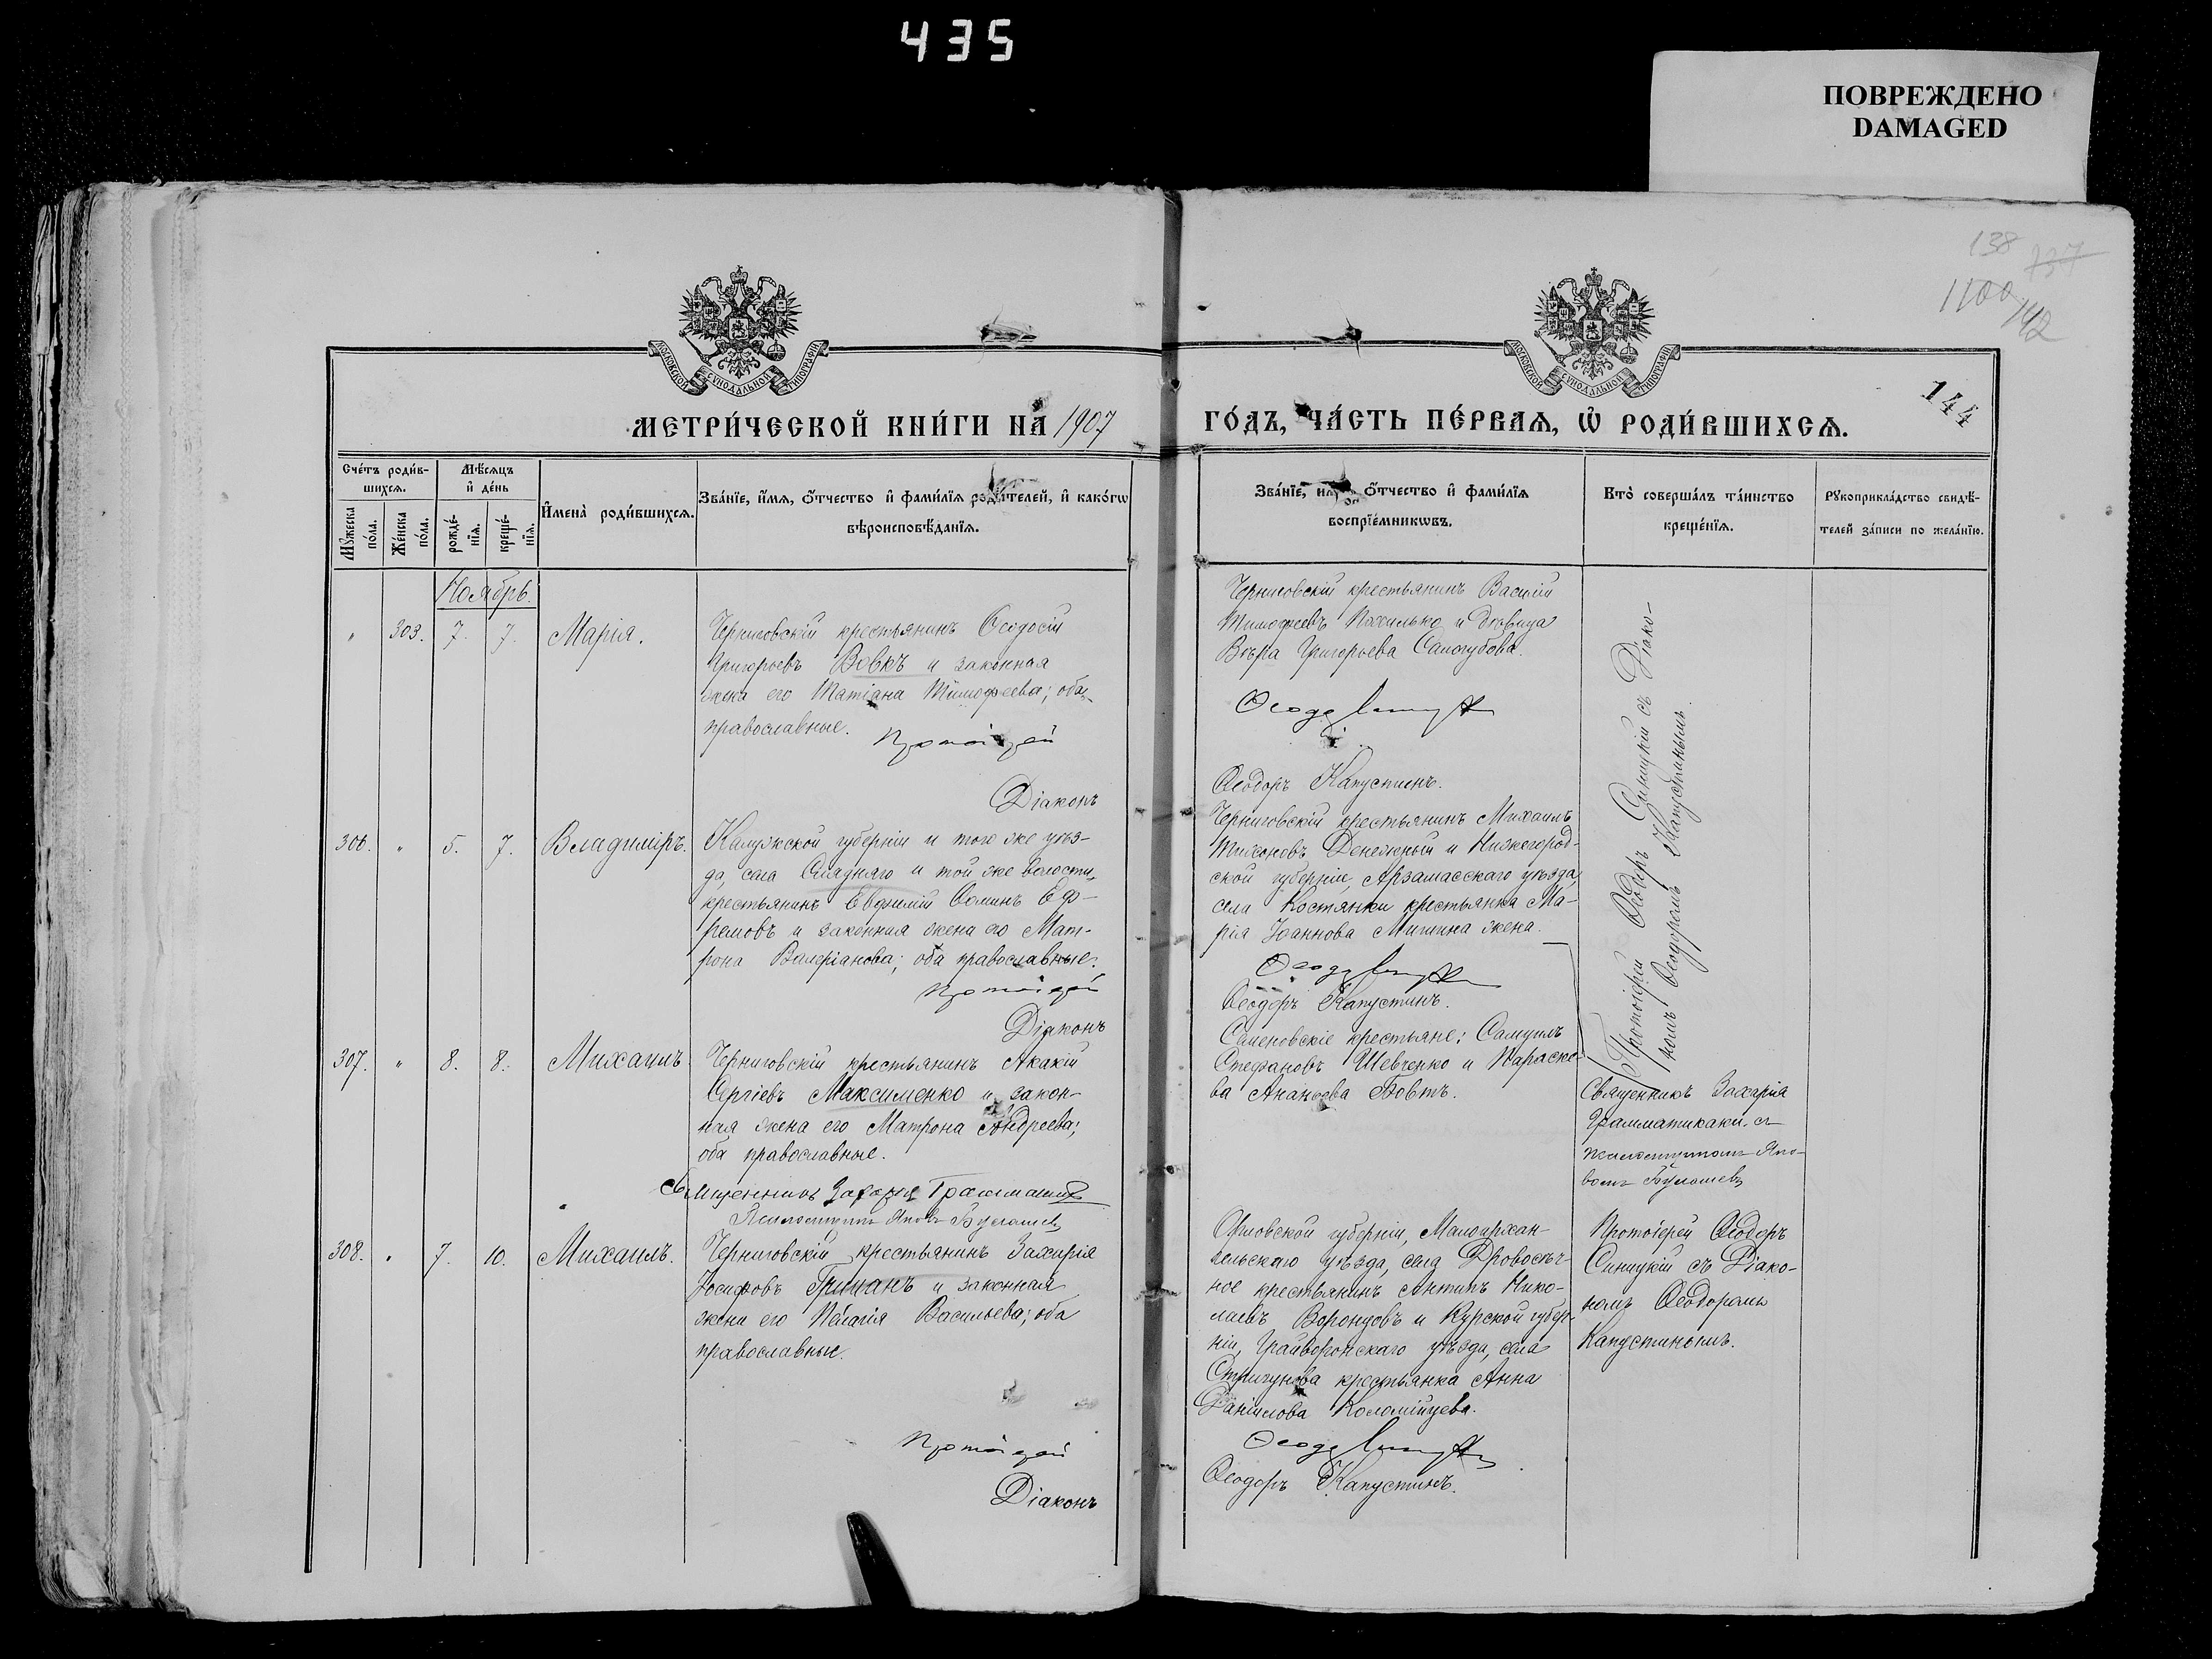 435
ПОВРЕЖДЕНО
DAMAGED
138
737
1100
142
144
МОСКОВСКОЙ СѴНОДАЛЬНОЙ ТИПОГРАФІИ
МОСКОВСКОЙ СѴНОДАЛЬНОЙ ТИПОГРАФІИ
МЕТРИ́ЧЕСКОЙ КНИ́ГИ НА 1907
ГО́ДЪ, ЧА́СТЬ ПЕ́РВАѦ, Ѡ РОДИ́ВШИХСѦ.
Сче́тъ роди́в-
шихсѧ.
Мꙋ́жеска
по́ла.
Же́нска
по́ла.
Мѣ́сѧцъ
и де́нь
рожде́-
нїѧ.
креще́-
нїѧ.
Имена̀ роди́вшихсѧ.
Зва́нїе, и́мѧ, ѻ́тчество и фами́лїѧ роди́телей, и како́гѡ
вѣроисповѣ́данїѧ.
Зва́нїе, и́мѧ, ѻ́тчество и фами́лїѧ
воспрїе́мникѡвъ.
Кто̀ соверша́лъ та́инство
креще́нїѧ.
Рꙋкоприкла́дство свидѣ́-
телей за́писи по жела́нїю.
Ноябрь.
" 303. 7. 7. Марія.
Черниговскій крестьянинъ Ѳеодосій
Григорьевъ Вовкъ и законная
жена его Татіана Тимофеева; оба
православные.
Протоіерей
Діаконъ
Черниговскій крестьянинъ Василій
Тимофеевъ Похилько и дѣвица
Вѣра Григорьева Самогубова.
Ѳеодоръ Капустинъ.
306. " 5. 7. Владиміръ.
Калужской губерніи и того же уѣз-
да, села и той же волости,
крестьянинъ Евфимій Ѳоминъ Еф-
ремовъ и законная жена его Мат-
рона Валеріанова; оба православные.
Протоіерей
Діаконъ
Черниговскій крестьянинъ Михаилъ
Тихоновъ Денежный и Нижегород-
ской губерніи, Арзамасскаго уѣзда,
села Костянки крестьянка Ма-
рія Іоаннова Мишина жена.
Ѳеодоръ Капустинъ.
Протоіерей Ѳеодоръ Синицкій съ Діако-
номъ Ѳеодоромъ Капустинымъ.
307. " 8. 8. Михаилъ
Черниговскій крестьянинъ Акакій
Сергіевъ Максименко и закон-
ная жена его Матрона Андреева;
оба православные.
Священникъ Захарія
Псаломщикъ Яковъ
Семеновскіе крестьяне: Самуилъ
Стефановъ Шевченко и Параске-
ва Ананьева Бовтъ.
Священникъ Захарія
Грамматикаки съ
псаломщикомъ Яко-
вомъ
308. " 7. 10. Михаилъ.
Черниговскій крестьянинъ Захарія
Іосифовъ Гришанъ и законная
жена его Пелагія Васильева; оба
православные.
Протоіерей
Діаконъ
Орловской губерніи, Малоархан-
гельскаго уѣзда, села Дровосѣч-
ное крестьянинъ Антипъ Нико-
лаевъ Воронцовъ и Курской губер-
ніи, Грайворонскаго уѣзда, села
Стригунова крестьянка Анна
Даніилова Коломійцева.
Ѳеодоръ Капустинъ.
Протоіерей Ѳеодоръ
Синицкій съ Діако-
номъ Ѳеодоромъ
Капустинымъ.